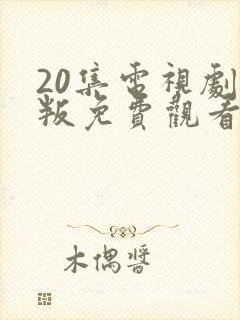 20集電視劇
叛免費觀看
木偶醬